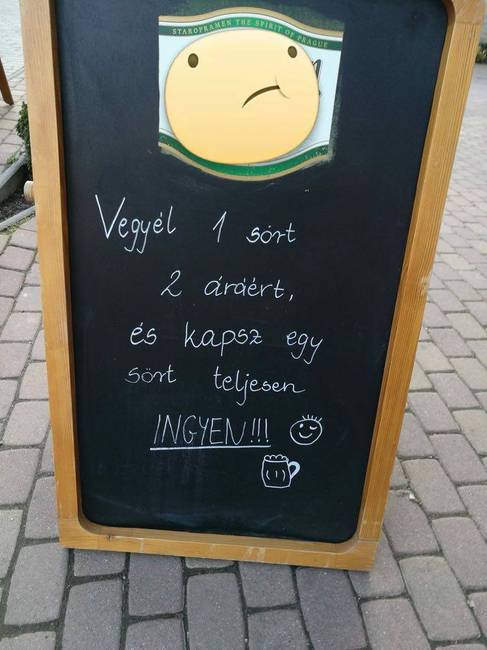 STAROPRAMEN THE SPIRIT OF PRAGUE
Vegyél 1 sört
2 áráért,
és kapsz egy
sört teljesen
INGYEN!!!